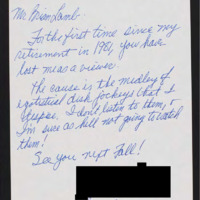 Mr. Brian Lamb-
For the first time since my
retirement in 1981, you have
lost me as a viewer.
The cause is the medley of
egotistical disk jockeys that I
despise. I don't listen to them, &
I'm sure as hell not going to watch
them!
See you next Fall!